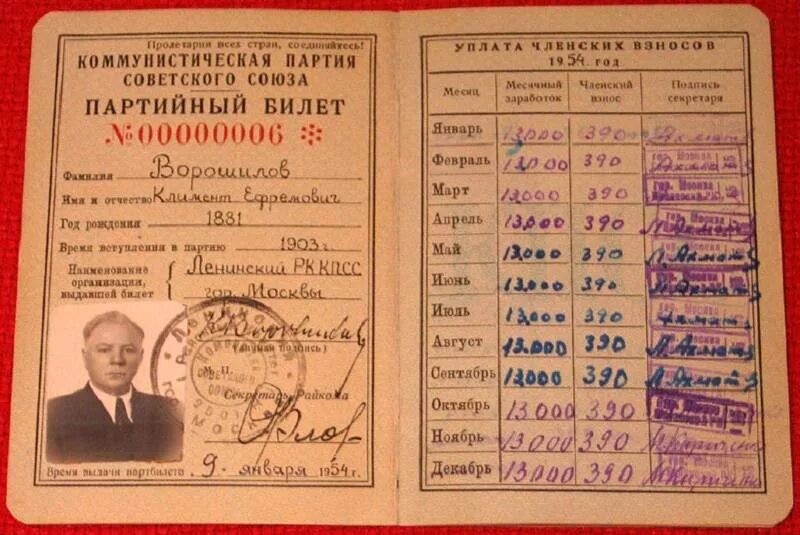 Пролетарии всех стран, соединяйтесь!
КОММУНИСТИЧЕСКАЯ ПАРТИЯ
СОВЕТСКОГО СОЮЗА
ПАРТИЙНЫЙ БИЛЕТ
№00000006
Фамилия Ворошилов
Имя и отчество Климент Ефремович
Год рождения 1881
Время вступления в партию 1903 г.
Наименование организации, выдавшей билет Ленинский РК КПСС
гор. Москвы
(личная подпись)
М. П.
Секретарь Райкома
Время выдачи партбилета 9. января 1954 г.
УПЛАТА ЧЛЕНСКИХ ВЗНОСОВ
1954. год
Месяц Месячный заработок Членский взнос Подпись секретаря
Январь 13.000 390
Февраль 13.000 390
Март 13.000 390
Апрель 13.000 390
Май 13.000 390
Июнь 13.000 390
Июль 13.000 390
Август 13.000 390
Сентябрь 13.000 390
Октябрь 13.000 390
Ноябрь 13.000 390
Декабрь 13.000 390